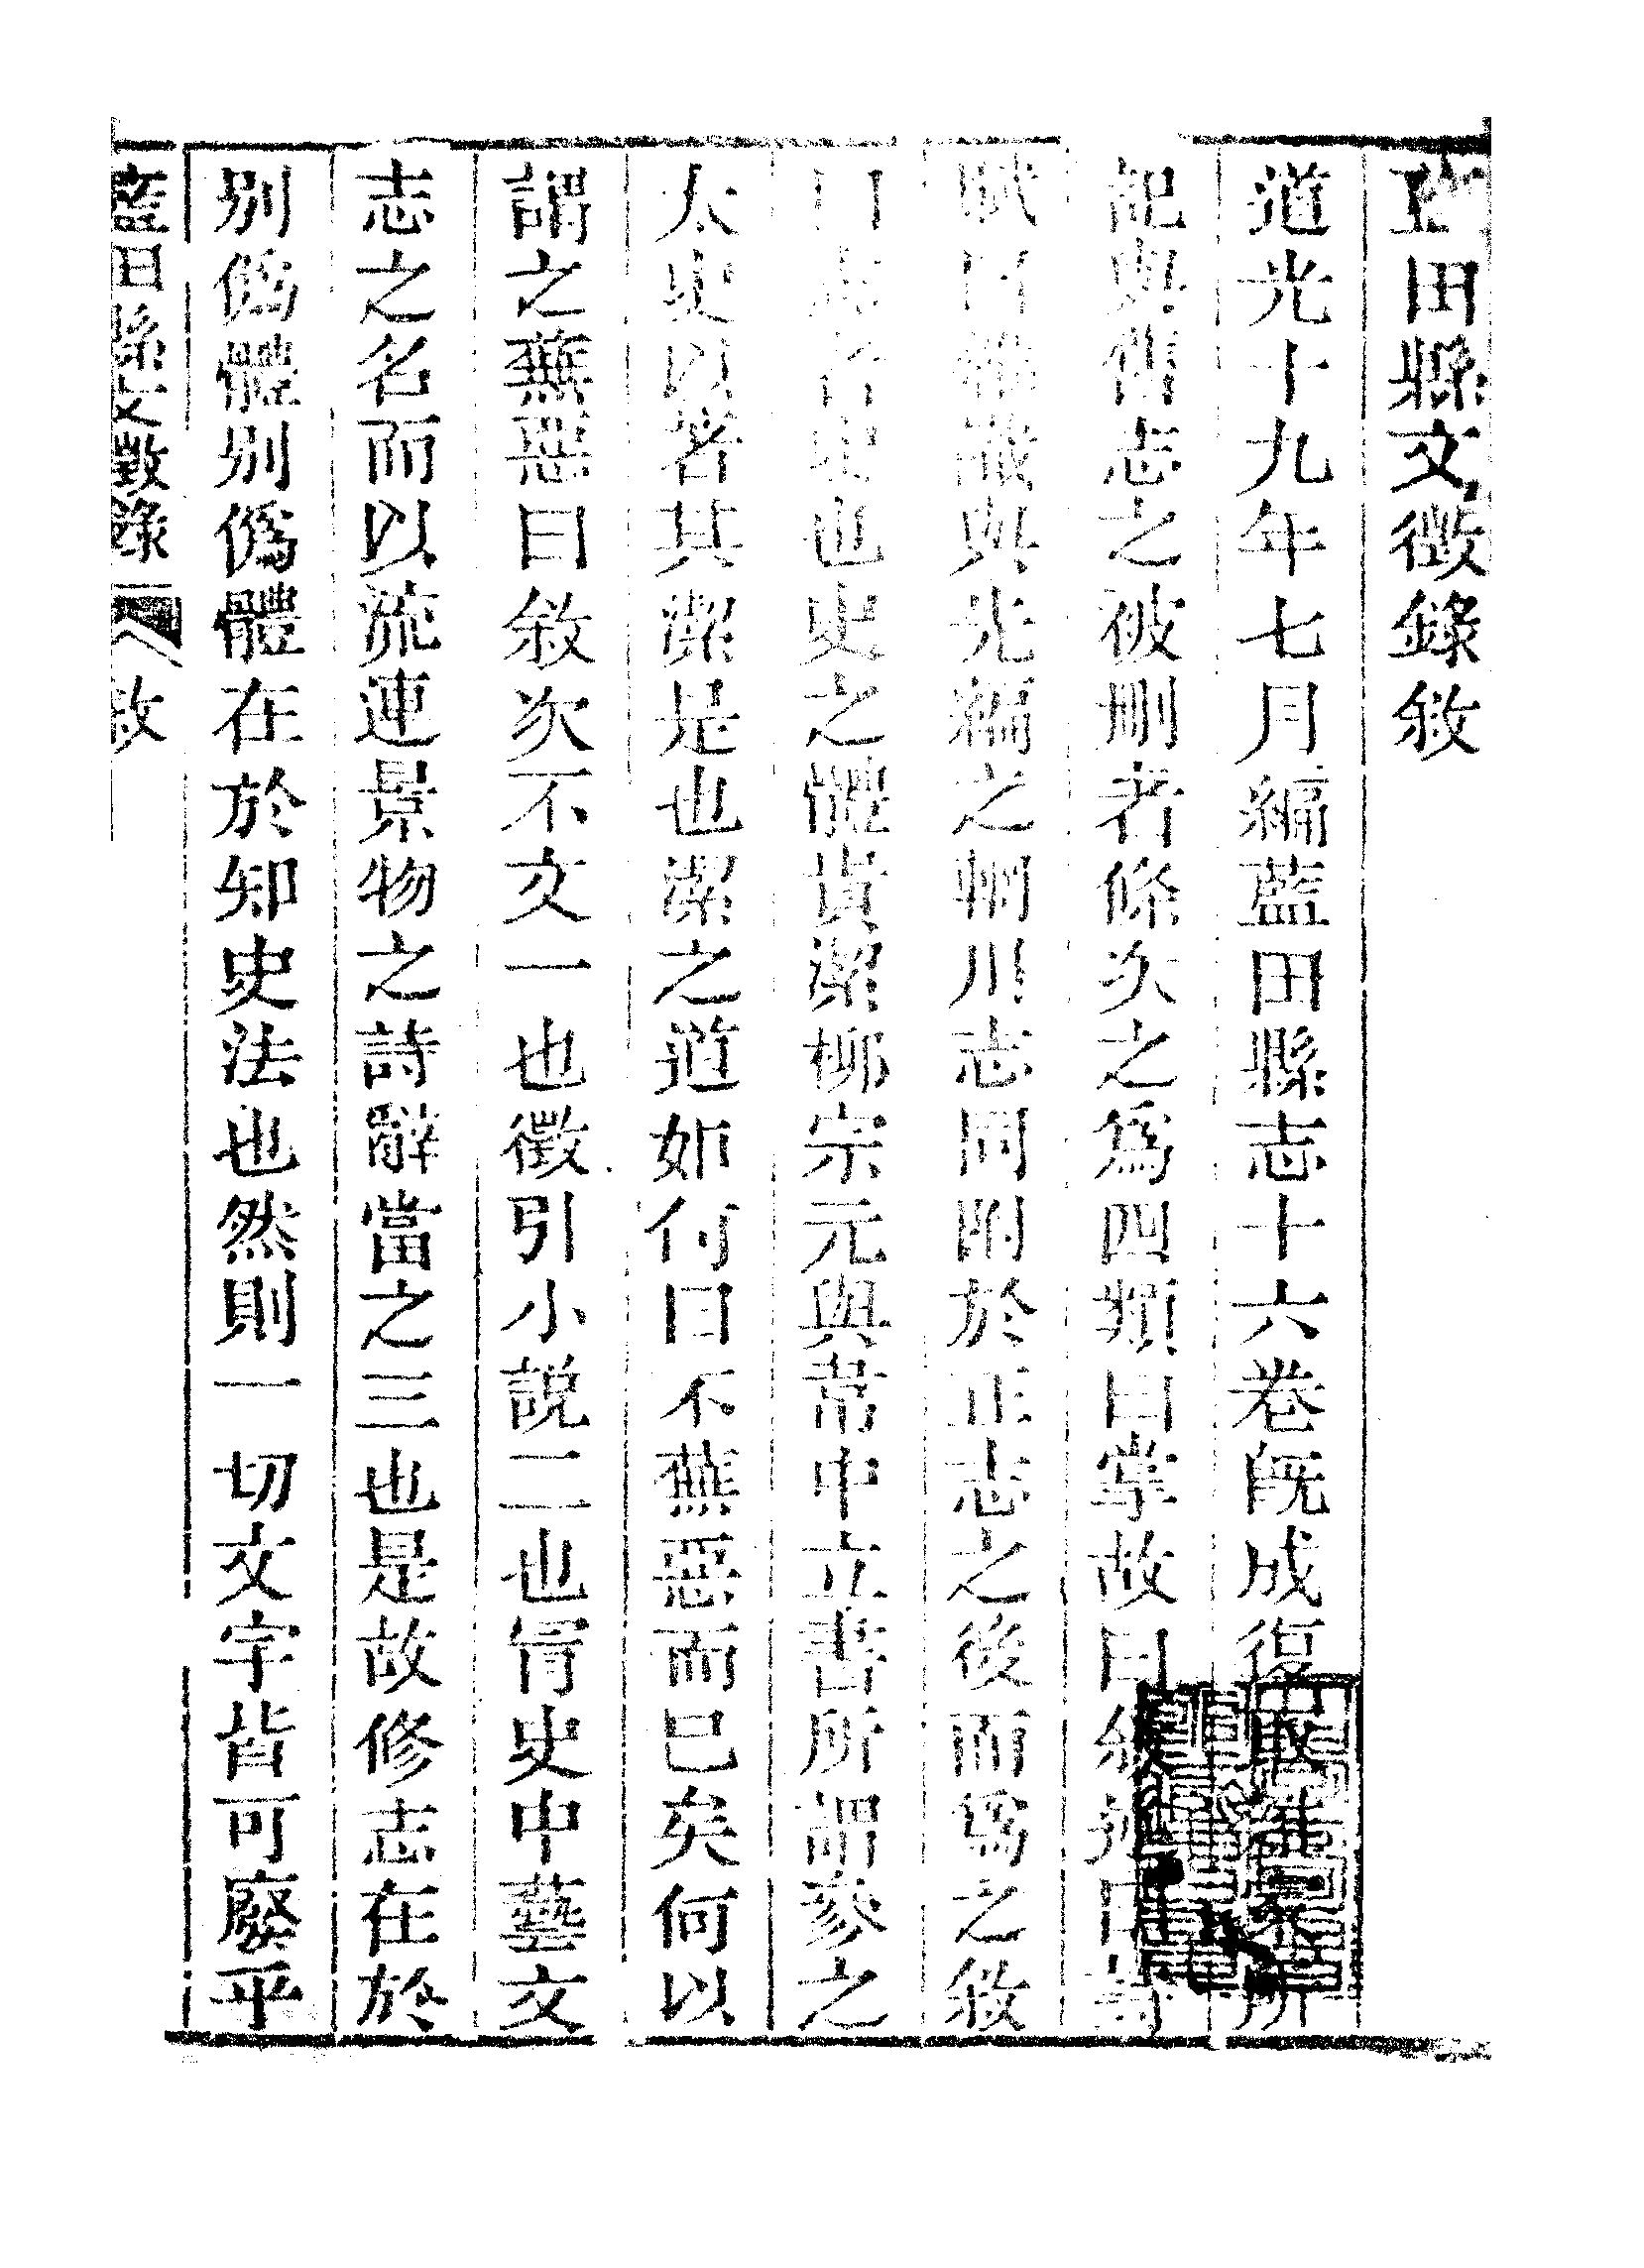 田縣文徵錄敘
道光十九年七月編藍田縣志十六卷既成復取諸家所
記與舊志之被刪者條次之為四類曰掌故曰敘述曰詩
賦曰雜識與先編之輞川志同附於正志之後而為之敘
曰志者史也史之體貴潔柳宗元與韋中立書所謂參之
太史以著其潔是也潔之道如何曰不蕪惡而已矣何以
謂之蕪惡曰敘次不文一也徵引小說二也昺史中藝文
志之名而以流連景物之詩辭當之三也是故修志在於
別偽體別偽體在於知史法也然則一切文字皆可廢乎
藍田縣文徵錄 敘